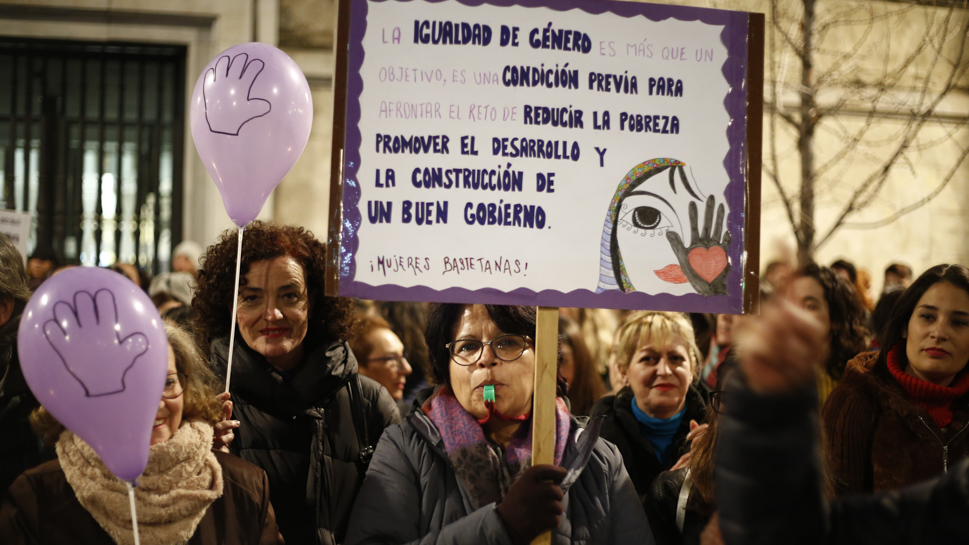 LA IGUALDAD DE GÉNERO ES MÁS QUE UN
OBJETIVO, ES UNA CONDICIÓN PREVIA PARA
AFRONTAR EL RETO DE REDUCIR LA POBREZA
PROMOVER EL DESARROLLO Y
LA CONSTRUCCIÓN DE
UN BUEN GOBIERNO.
¡MUJERES BASTETANAS!